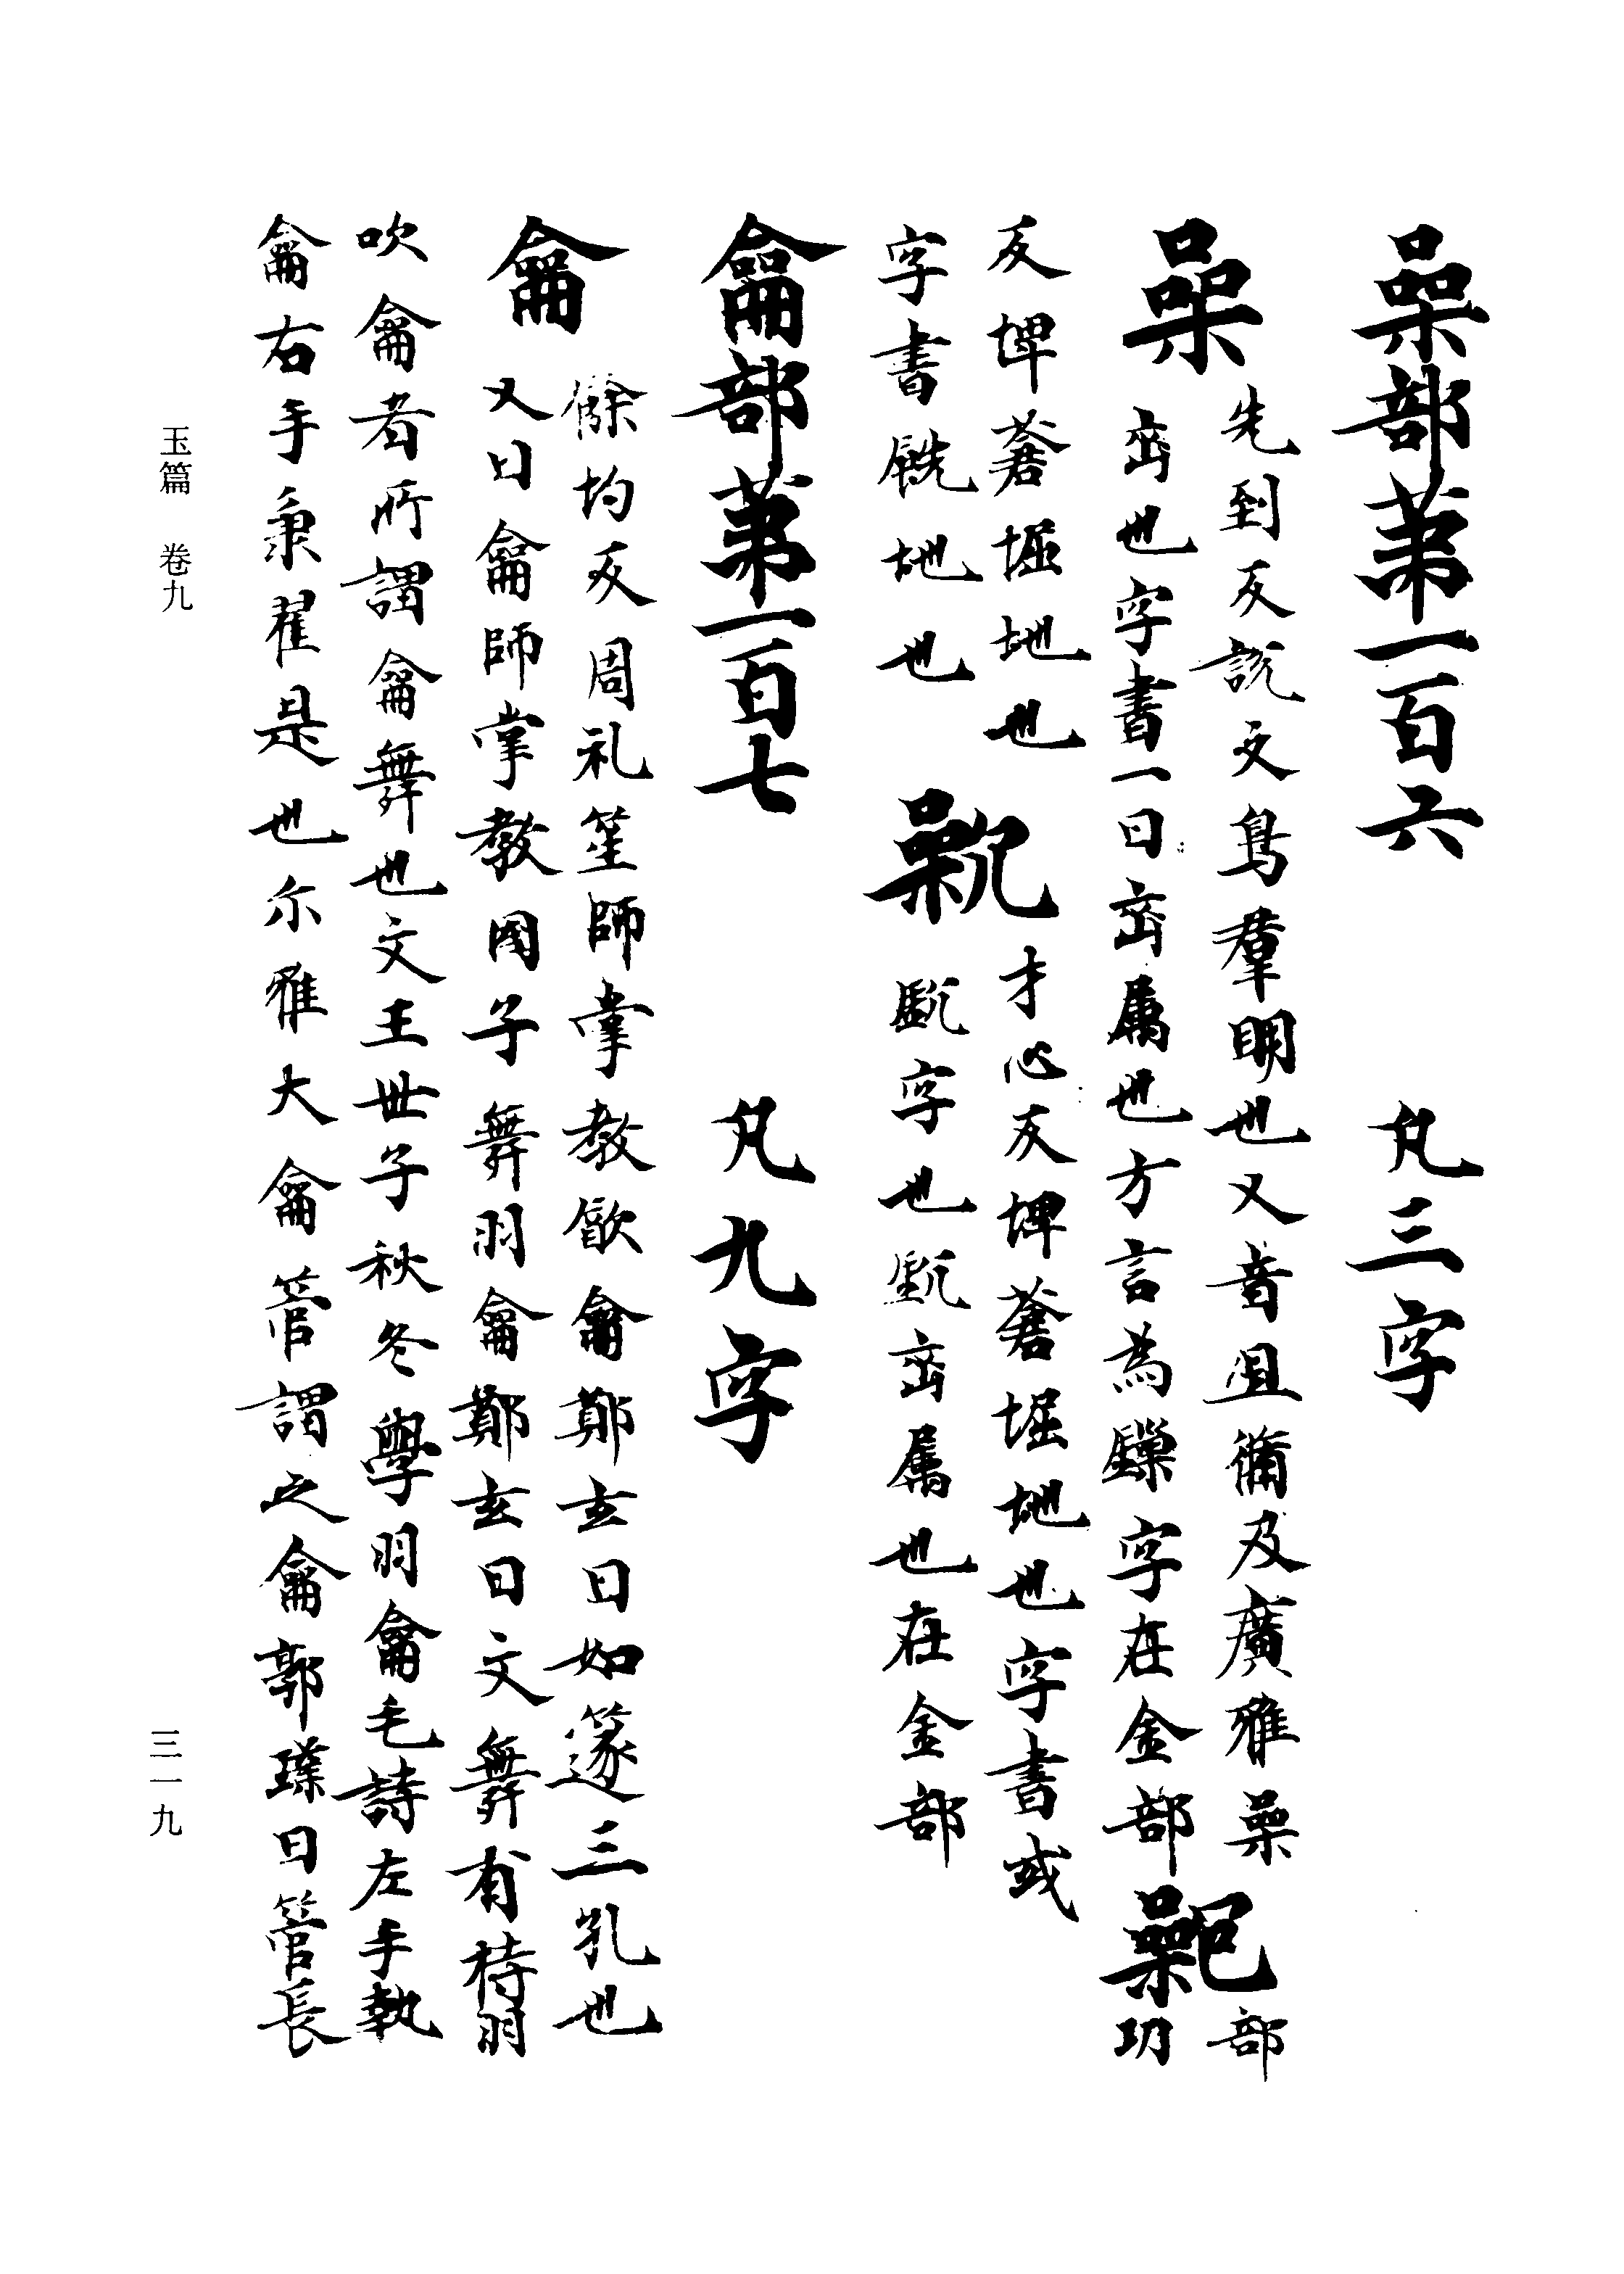 喿部苐一百六 凡三字
喿 先到反說文鳥羣明也又音且彌及廣雅喿
臿也字書一曰臿属也方言為鐰字在金部
部
㓛
反埤蒼堀地也
字書銚地也
才心反埤蒼堀地也字書或
字也 臿属也在金部
龠部苐一百七 凡九字
龠 餘均反周礼笙師掌教龡龠鄭玄曰如篴三孔也
又曰龠師掌教國子舞羽龠鄭玄曰文舞有持羽
吹龠者所謂龠舞也文王世子秋冬學羽龠毛詩左手執
龠右手秉翟是也尓雅大龠管謂之龠郭璞曰管長
玉篇 卷九
三一九